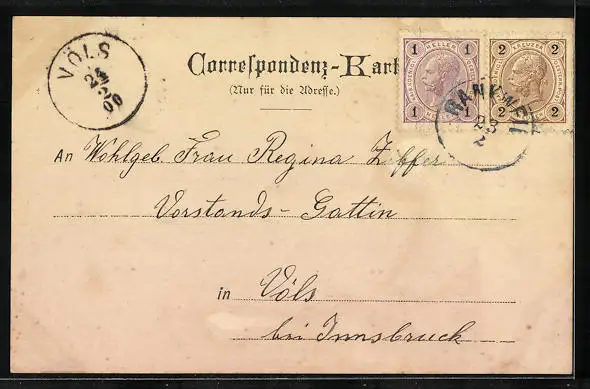 VÖLS
24
2
00
Correspondenz-Kart
(Nur für die Adresse.)
1 HELLER 1
1 1
2 KREUZER 2
2 2
RANKWEIL
23
2
An Wohlgeb. Frau Regina
Vorstands-Gattin
in Völs
bei Innsbruck